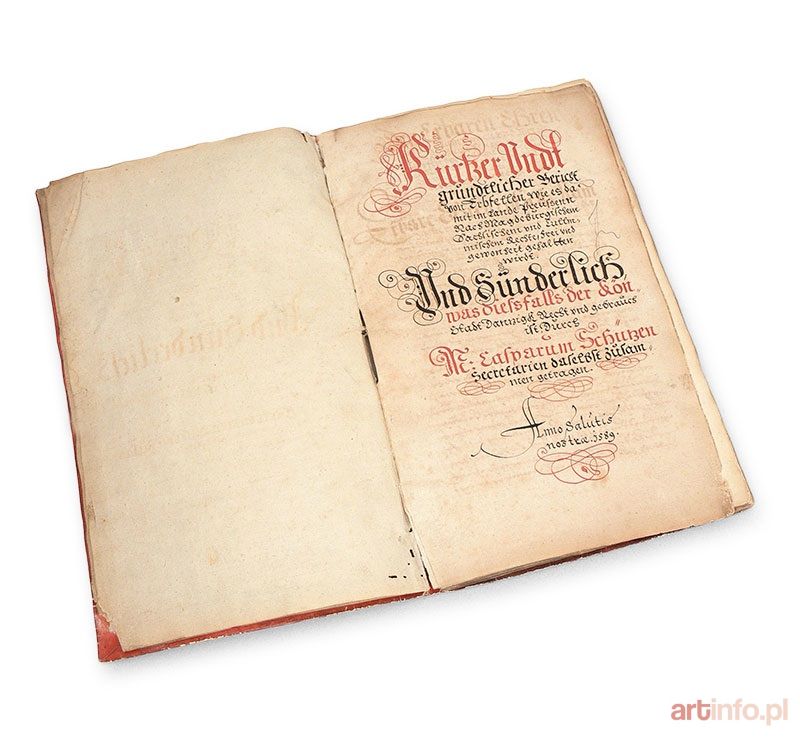 Kürtzer Undt
gründtlicher Bericht
von Erbfellen wie es da,
mit im Lande Preussenn
Nach Magdebürgischem
Sachsischem und Cüllm,
mischem Rechte, frei und
gewonheit gehaltten
wirdt.
Und Sünderlich
was diessfalls der Kön.
Stadt Dannzigk Recht und gebraüch
ist Dürch
M: Casparum Schützen
Secretarien daselbst züsam,
men getragen.
Anno Salutis
nostræ. 1589.
artinfo.pl